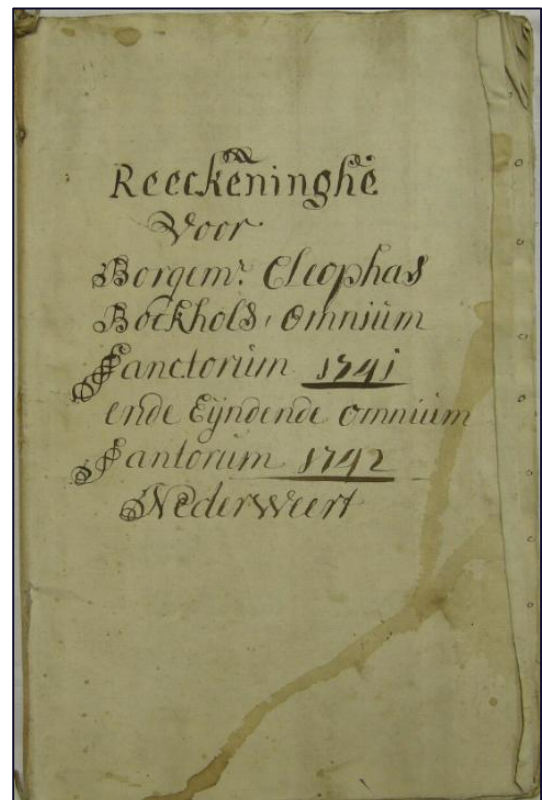 Reeckeninghe
Voor
Borgemr. Cleophas
Bockhols, Omnium
Sanctorum 1741
ende Eijndende Omnium
Santorum 1742
Nederweert